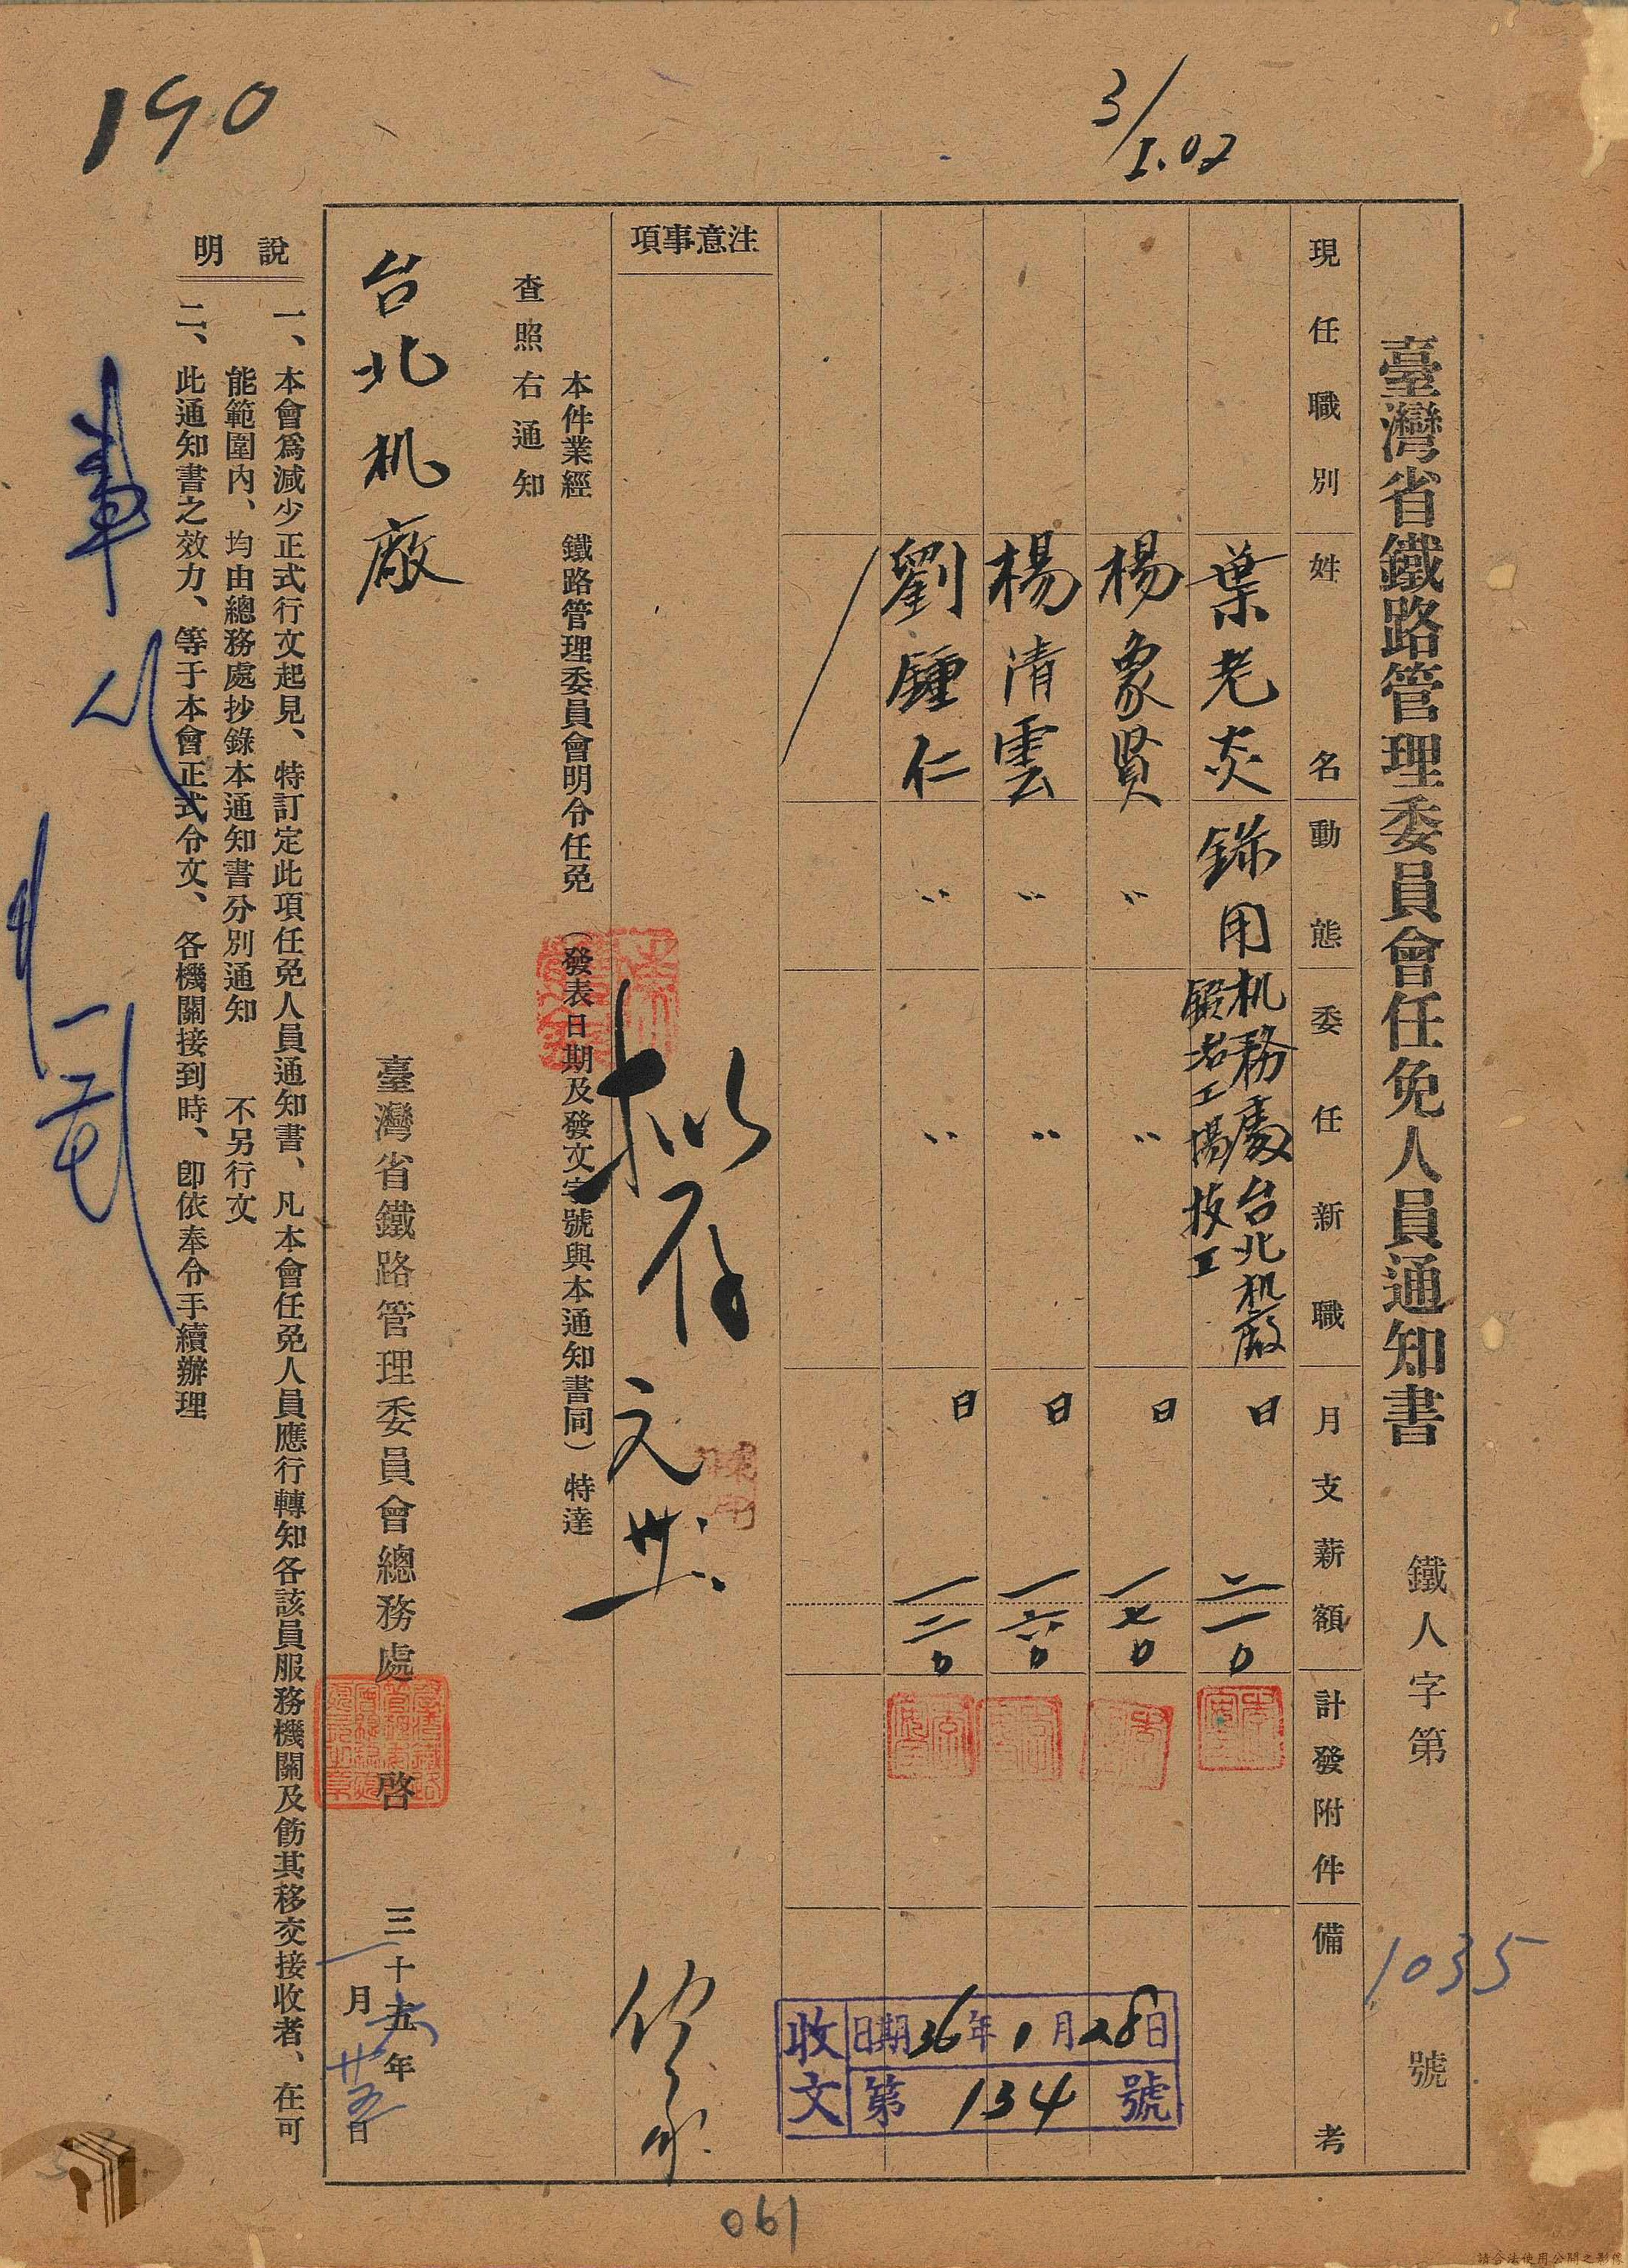 190
3/1.02
臺灣省鐵路管理委員會任免人員通知書
鐵人字第 1035 號
現任職別
姓名
動態
委任新職
月支薪額
計發附件
備考
葉老炎 錄用 机務處台北机廠鍛冶工場技工 日 二一0
楊象賢 〃 〃 日 一七0
楊清雲 〃 〃 日 一六0
劉鍾仁 〃 〃 日 一二0
收文
日期36年1月28日
第 134 號
注意事項
擬存
本件業經 鐵路管理委員會明令任免(發表日期及發文字號與本通知書同)特達
查照右通知
台北机廠
臺灣省鐵路管理委員會總務處 啓
三十五年六
一月廿五日
說明
一、本會爲減少正式行文起見、特訂定此項任免人員通知書、凡本會任免人員應行轉知各該員服務機關及飭其移交接收者、在可
能範圍內、均由總務處抄錄本通知書分別通知 不另行文
二、此通知書之效力、等于本會正式令文、各機關接到時、卽依奉令手續辦理
061
請合法使用公開之影像